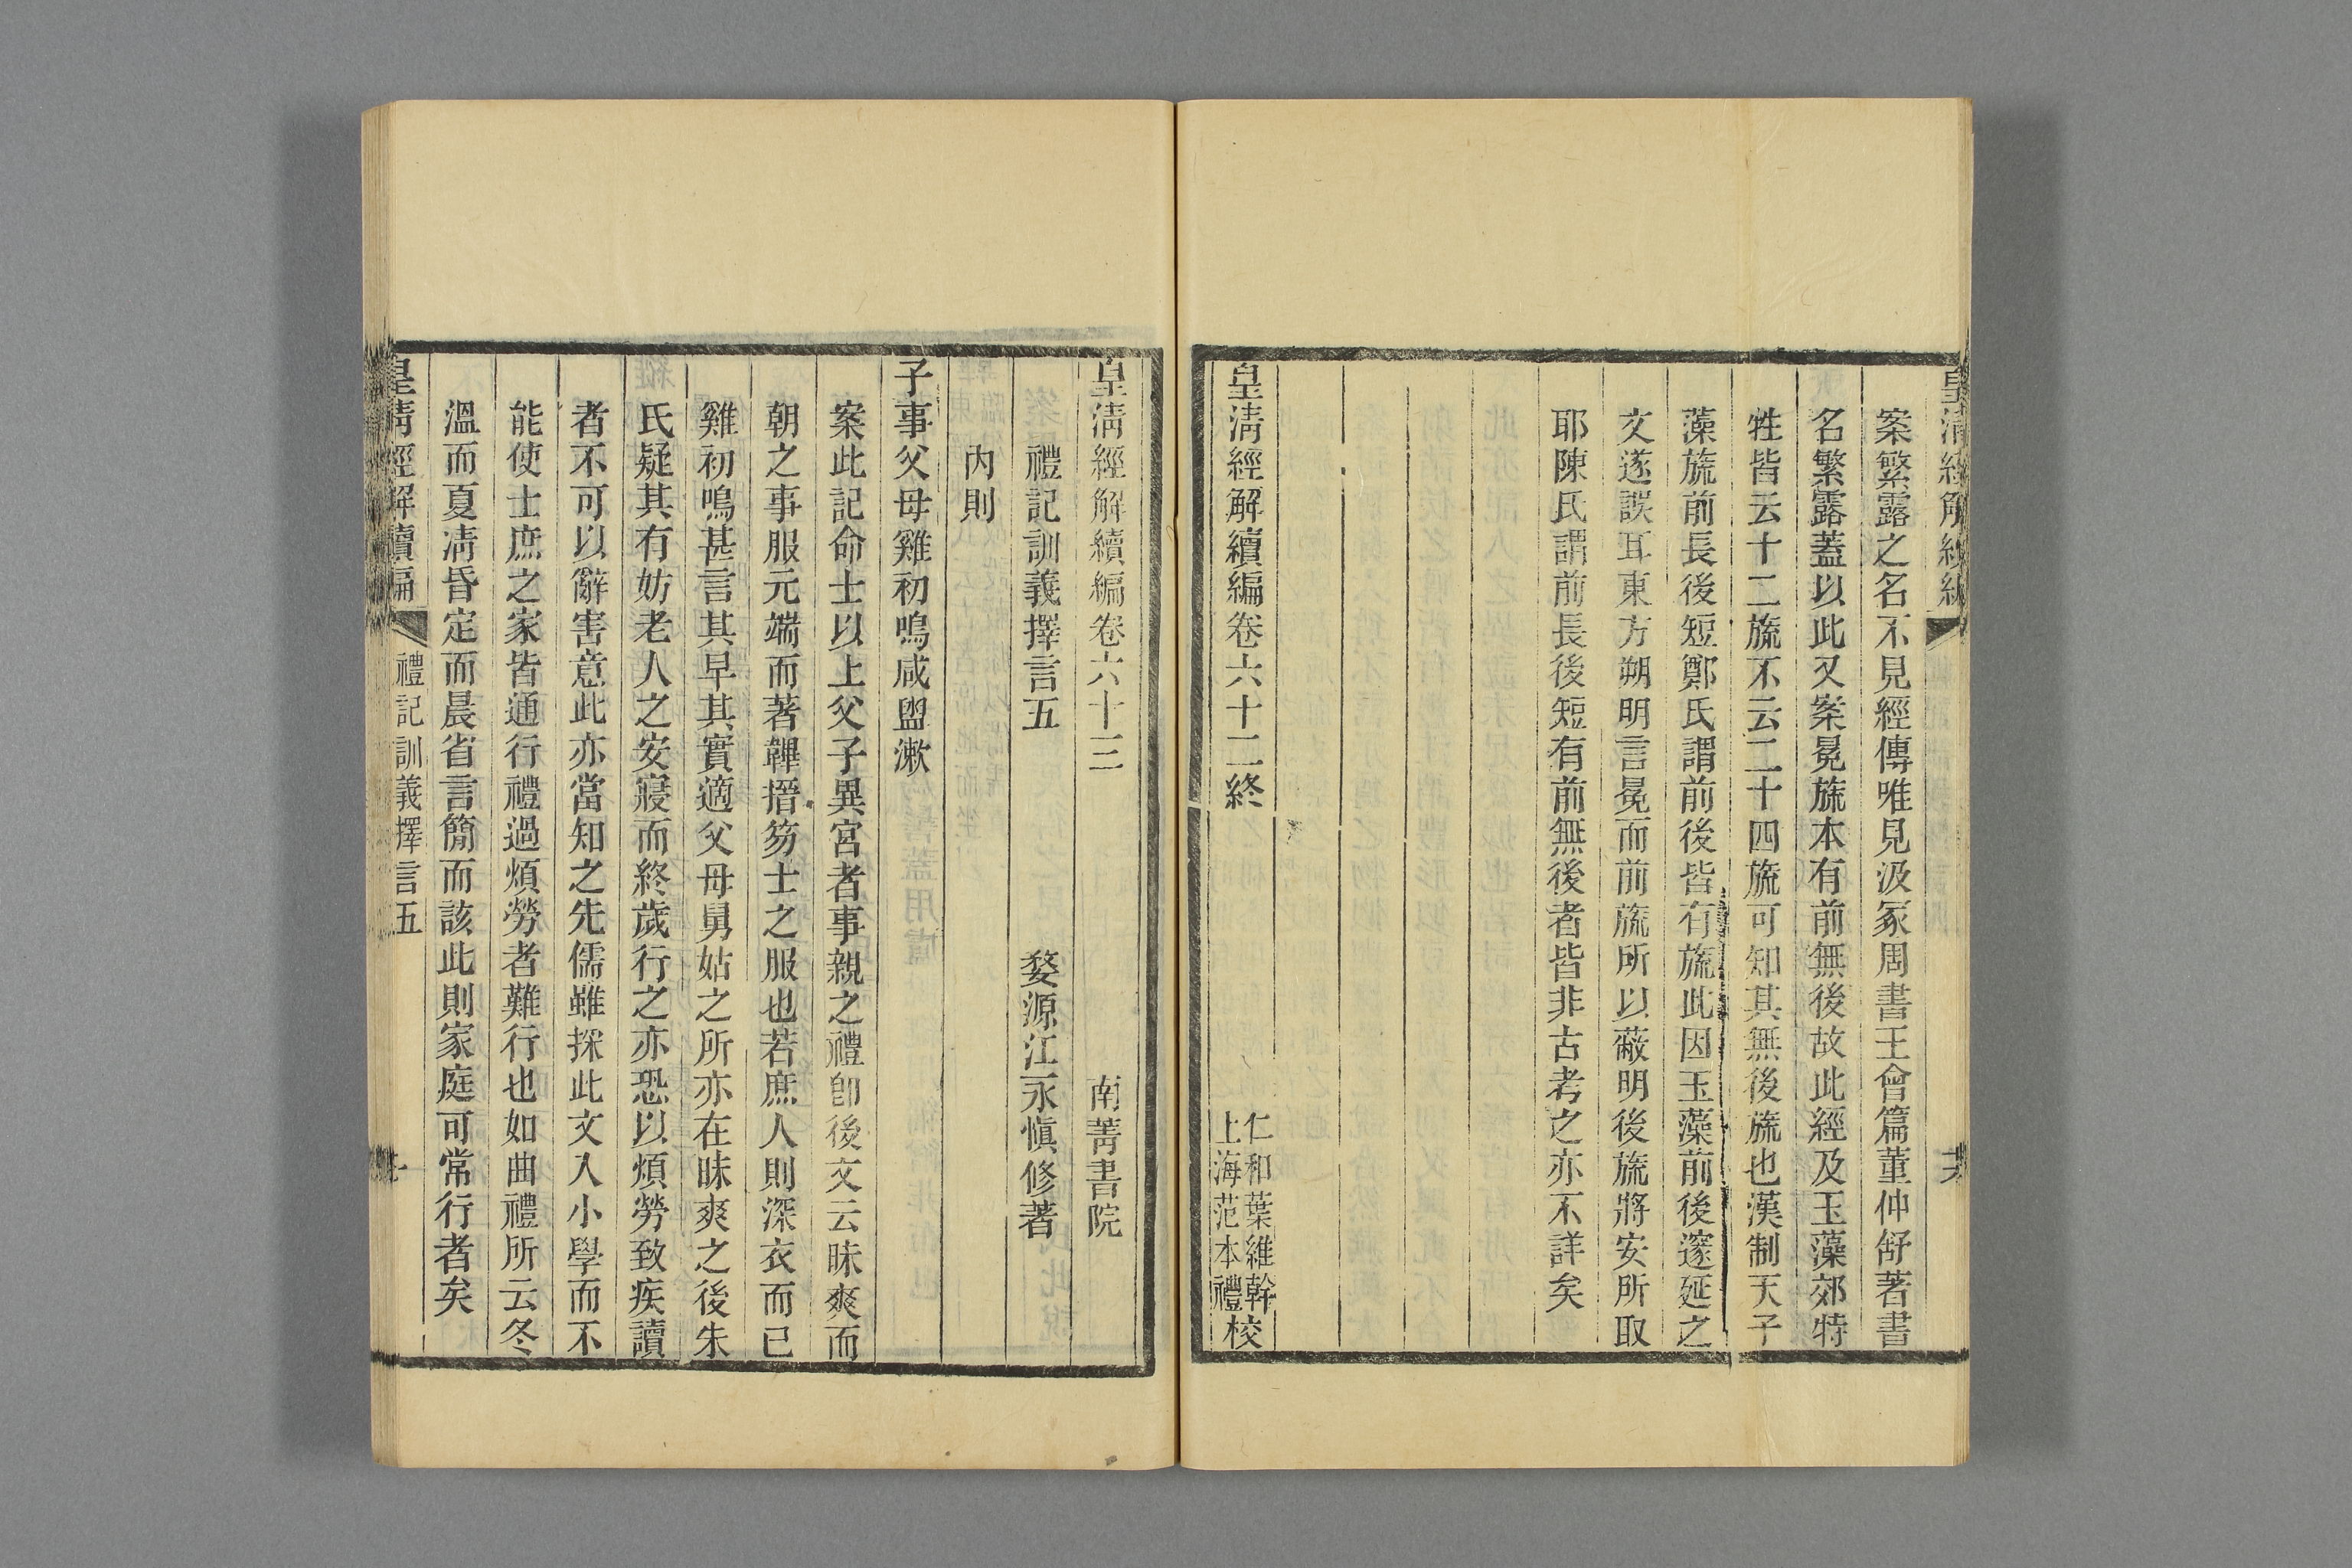 案繁露之名不見經傳唯見汲冢周書王會篇董仲舒著書
名繁露蓋以此又案冕旒本有前無後故此經及玉藻郊特
牲皆云十二旒不云二十四旒可知其無後旒也漢制天子
藻旒前長後短鄭氏謂前後皆有旒此因玉藻前後邃延之
文遂誤耳東方朔明言冕而前旒所以蔽明後旒將安所取
耶陳氏謂前長後短有前無後者皆非古考之亦不詳矣
皇清經解續編卷六十二終
仁和葉維幹
上海范本禮
校
皇清經解續編卷六十三
南菁書院
禮記訓義擇言五
婺源江永慎修著
內則
子事父母雞初鳴咸盥漱
案此記命士以上父子異宮者事親之禮卽後文云昧爽而
朝之事服元端而著韠搢笏士之服也若庶人則深衣而已
雞初鳴甚言其早其實適父母舅姑之所亦在昧爽之後朱
氏疑其有妨老人之安寢而終歲行之亦恐以煩勞致疾讀
者不可以辭害意此亦當知之先儒雖採此文入小學而不
能使士庶之家皆通行禮過煩勞者難行也如曲禮所云冬
溫而夏凊昏定而晨省言簡而該此則家庭可常行者矣
皇清經解續編
禮記訓義擇言五